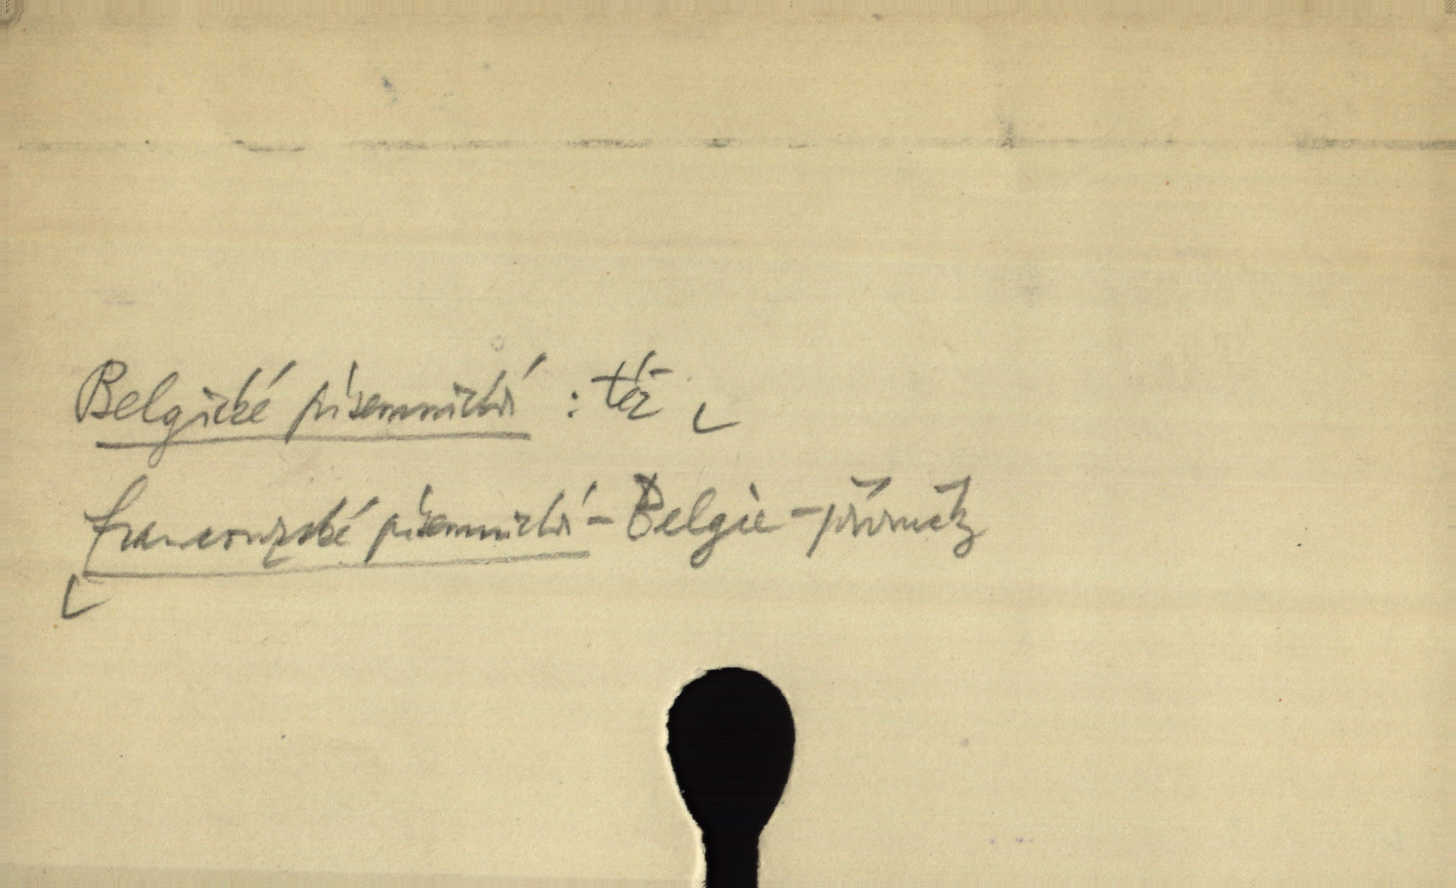 Belgické písemnictví : též
francouzské písemnictví - Belgie - příručky